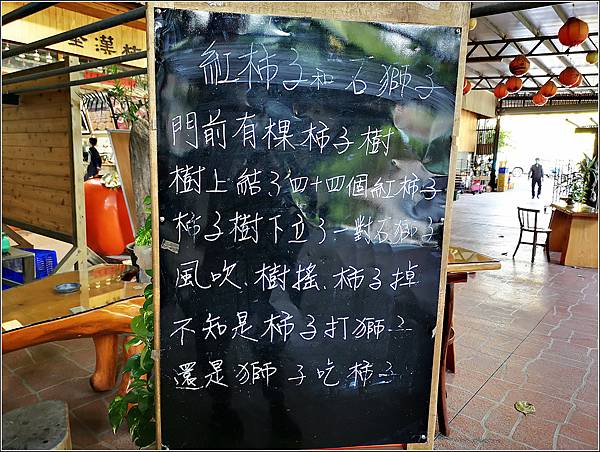 紅柿子和石獅子
門前有棵柿子樹
樹上結了四十四個紅柿子
柿子樹下立了一對石獅子
風吹、樹搖、柿子掉
不知是柿子打獅子
還是獅子吃柿子